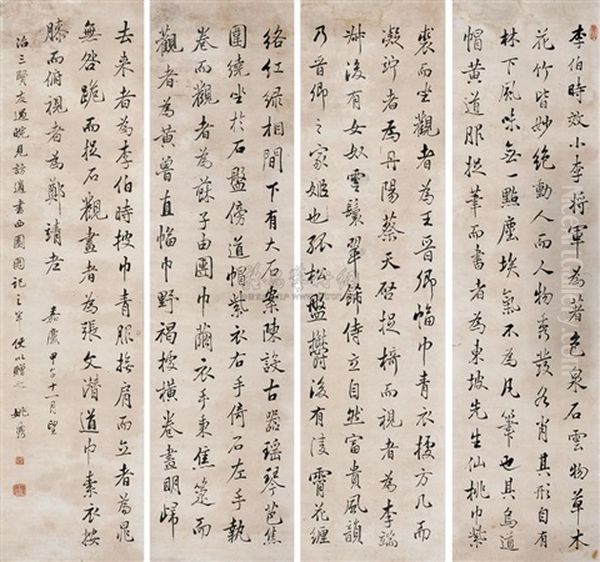 李伯時效小李將軍為著色泉石雲物草木
花竹皆妙絕動人而人物秀發各肖其形自有
林下風味無一點塵埃氣不為凡筆也其烏
帽黃道服捉筆而書者為東坡先生仙桃巾紫
裘而坐觀者為王晉卿幅巾青衣據方几而
凝竚者為丹陽蔡天啓捉椅而視者為李端
叔後有女奴雲鬟翠飾侍立自然富貴風韻
乃晉卿之家姬也孤松盤鬱後有凌霄花纏
絡紅綠相間下有大石案陳設古器瑤琴芭蕉
圍繞坐於石盤傍道帽紫衣右手倚石左手執
卷而觀者為蘇子由團巾繭衣手秉蕉箑而
觀者為黃魯直幅巾野褐據橫卷畫淵明歸
去来者為李伯時披巾青服撫肩而立者為晁
無咎跪而捉石觀畫者為張文潛道巾素衣按
膝而俯視者為鄭靖老
嘉慶甲子十一月望
治三賢友過皖見訪適書西園圖記之半便以贈之 姚鼐